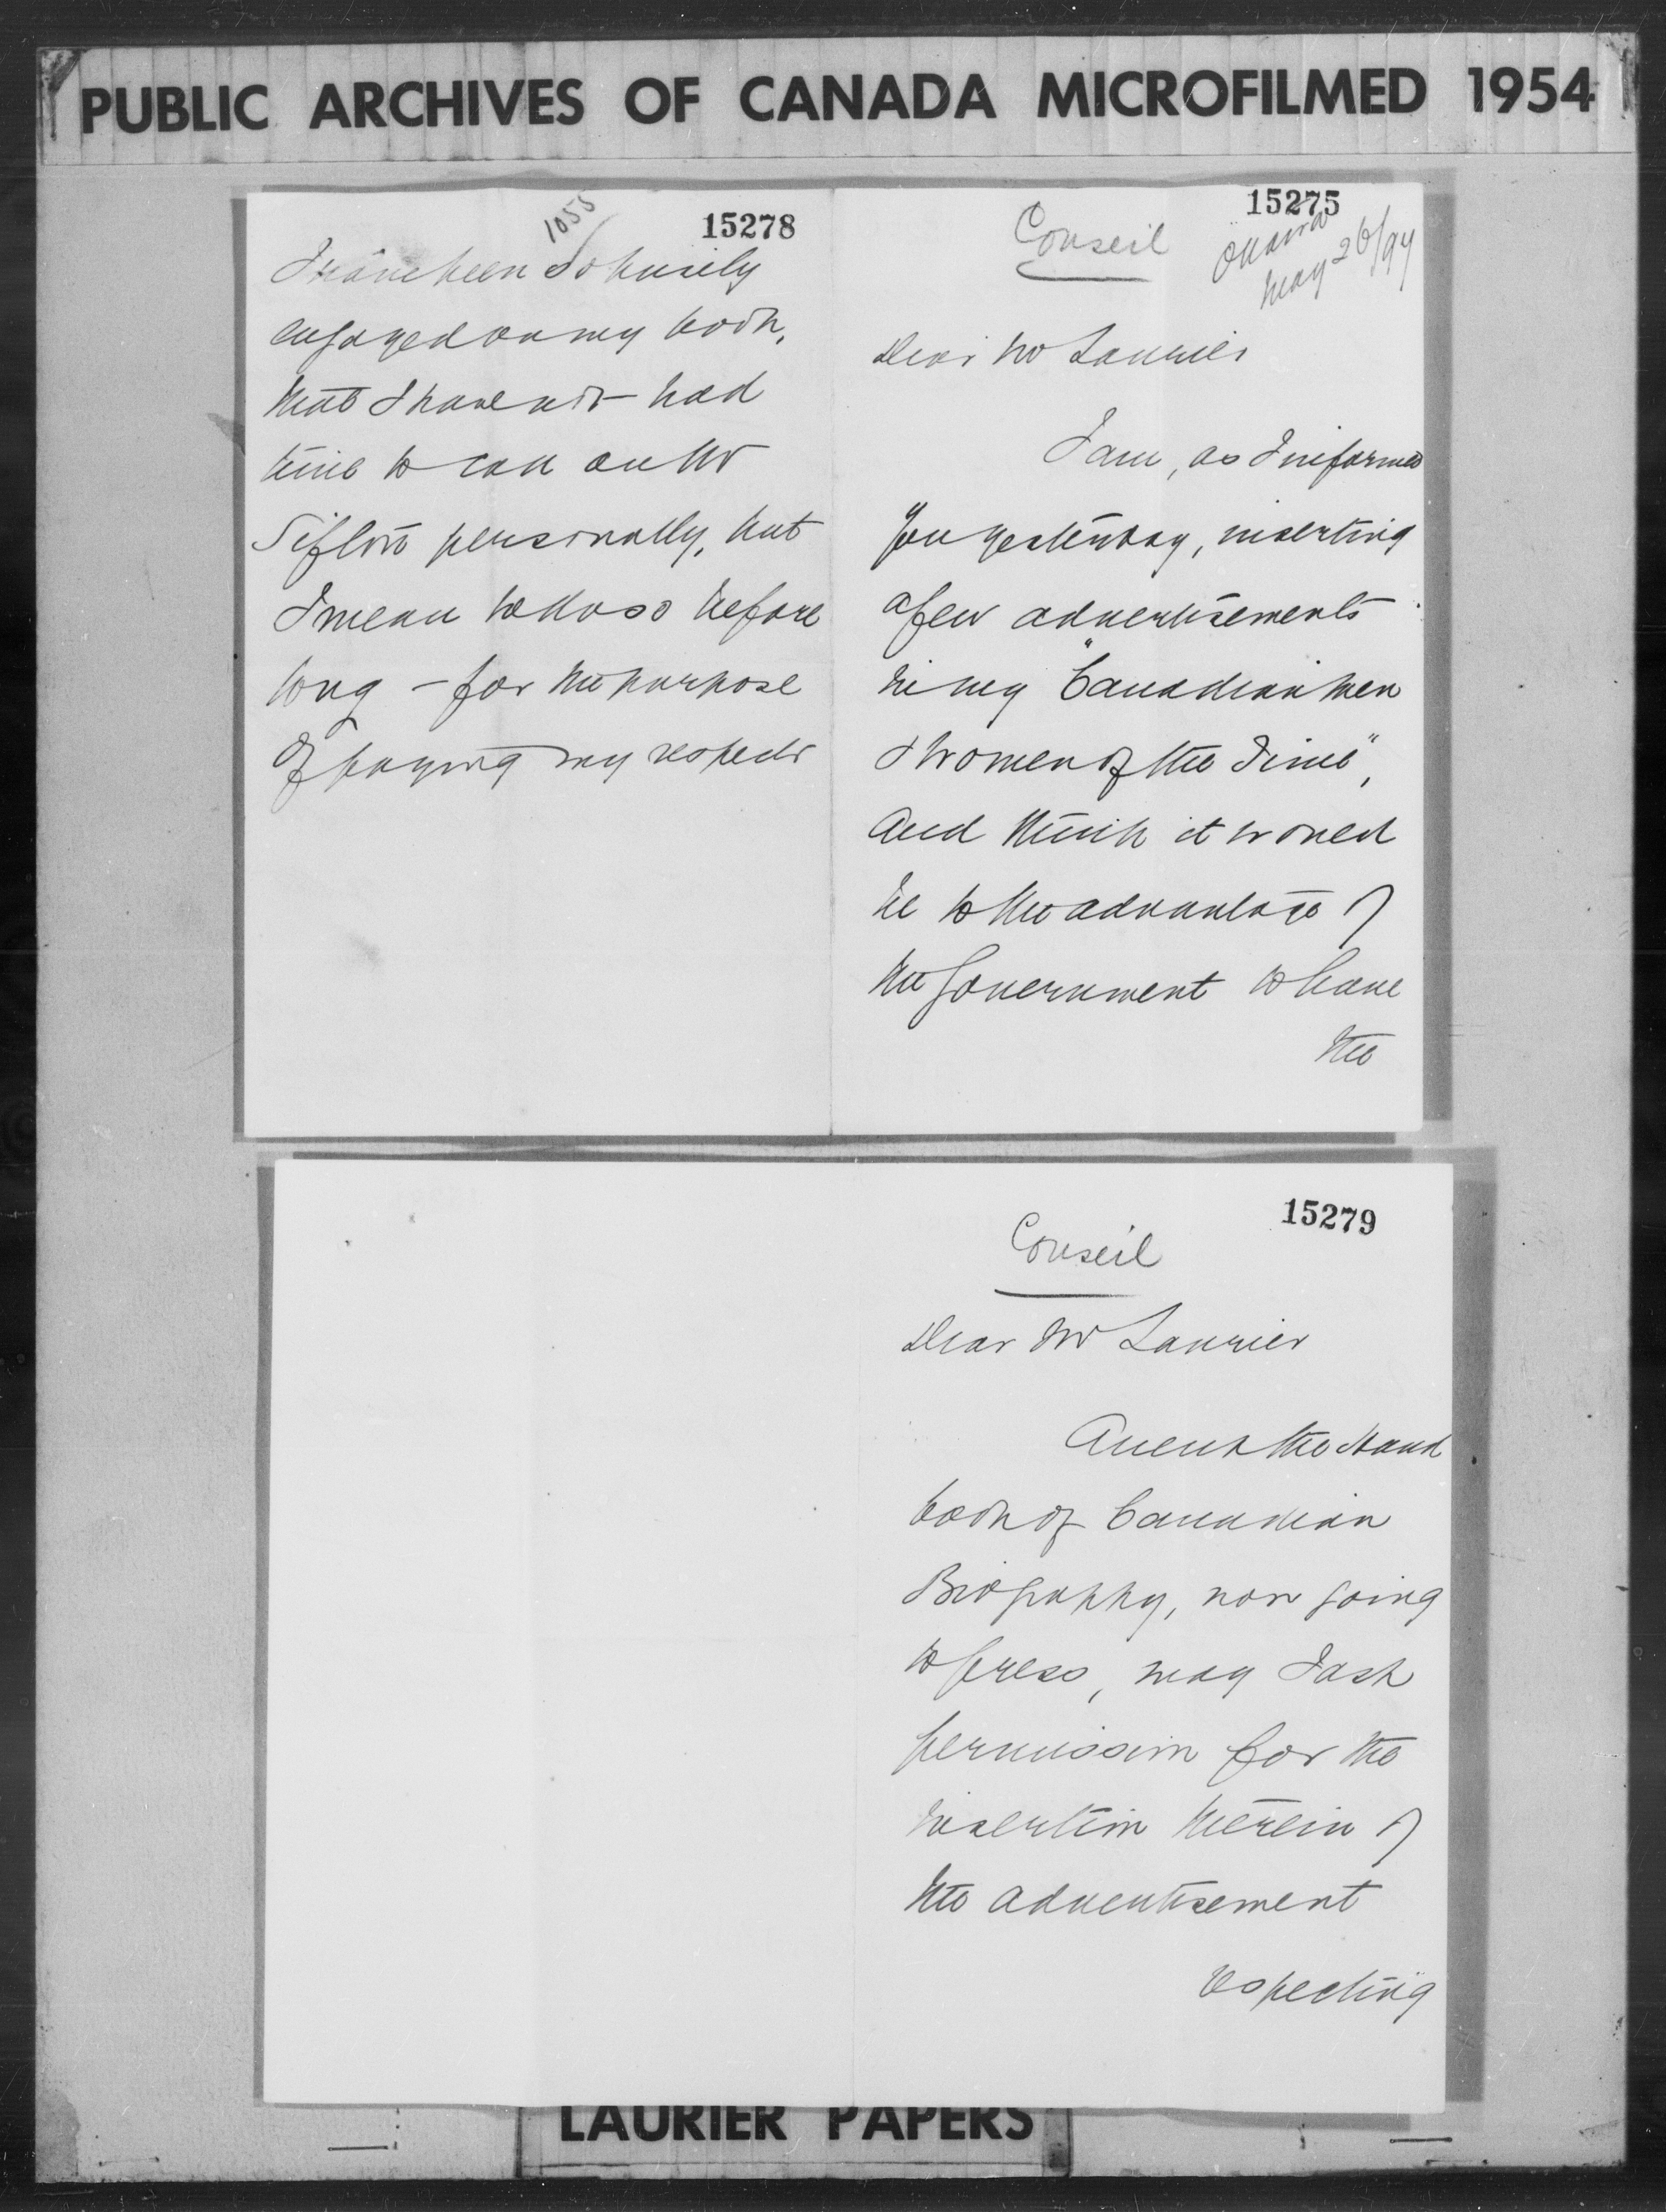 PUBLIC ARCHIVES OF CANADA MICROFILMED 1954
1055
15278
I have been so busily
engaged on my book,
that I have not had
time to call on Mr
Sifton personally, but
I mean to do so before
long - for the purpose
of paying my respects
15275
Conseil
Ottawa
May 26/97
Dear Mr Laurier
I am, as I informed
you yesterday, inserting
a few advertisements
in my "Canadian Men
& Women of the Time",
and think it would
be to the advantage of
the Government to have
the
15279
Conseil
Dear Mr Laurier
Anent the Hand
book of Canadian
Biography, now going
to press, may I ask
permission for the
insertion therein of
the advertisement
respecting
LAURIER PAPERS